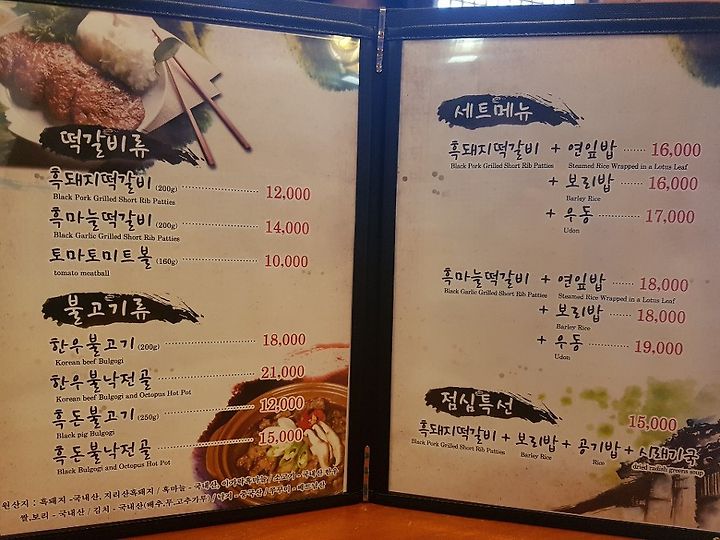 떡갈비류
흑돼지떡갈비 (200g) 12,000
Black Pork Grilled Short Rib Patties
흑마늘떡갈비 (200g) 14,000
Black Garlic Grilled Short Rib Patties
토마토미트볼 (160g) 10,000
tomato meatball
불고기류
한우불고기 (200g) 18,000
Korean beef Bulgogi
한우불낙전골 21,000
Korean beef Bulgogi and Octopus Hot Pot
흑돈불고기 (250g) 12,000
Black pig Bulgogi
흑돈불낙전골 15,000
Black Bulgogi and Octopus Hot Pot
원산지 : 흑돼지 -국내산, 지리산흑돼지 / 흑마늘 - 국내산, / 소고기 - 국내산한우
쌀,보리 - 국내산 / 김치 - 국내산(배추,무,고추가루) / 낙지 - 중국산 / 쭈꾸미 - 베트남산
세트메뉴
흑돼지떡갈비 + 연잎밥 16,000
Black Pork Grilled Short Rib Patties Steamed Rice Wrapped in a Lotus Leaf
+ 보리밥 16,000
Barley Rice
+ 우동 17,000
Udon
흑마늘떡갈비 + 연잎밥 18,000
Black Garlic Grilled Short Rib Patties Steamed Rice Wrapped in a Lotus Leaf
+ 보리밥 18,000
Barley Rice
+ 우동 19,000
Udon
점심특선
15,000
흑돼지떡갈비 + 보리밥 + 공기밥 + 시래기국
Black Pork Grilled Short Rib Patties Barley Rice Rice dried radish greens soup